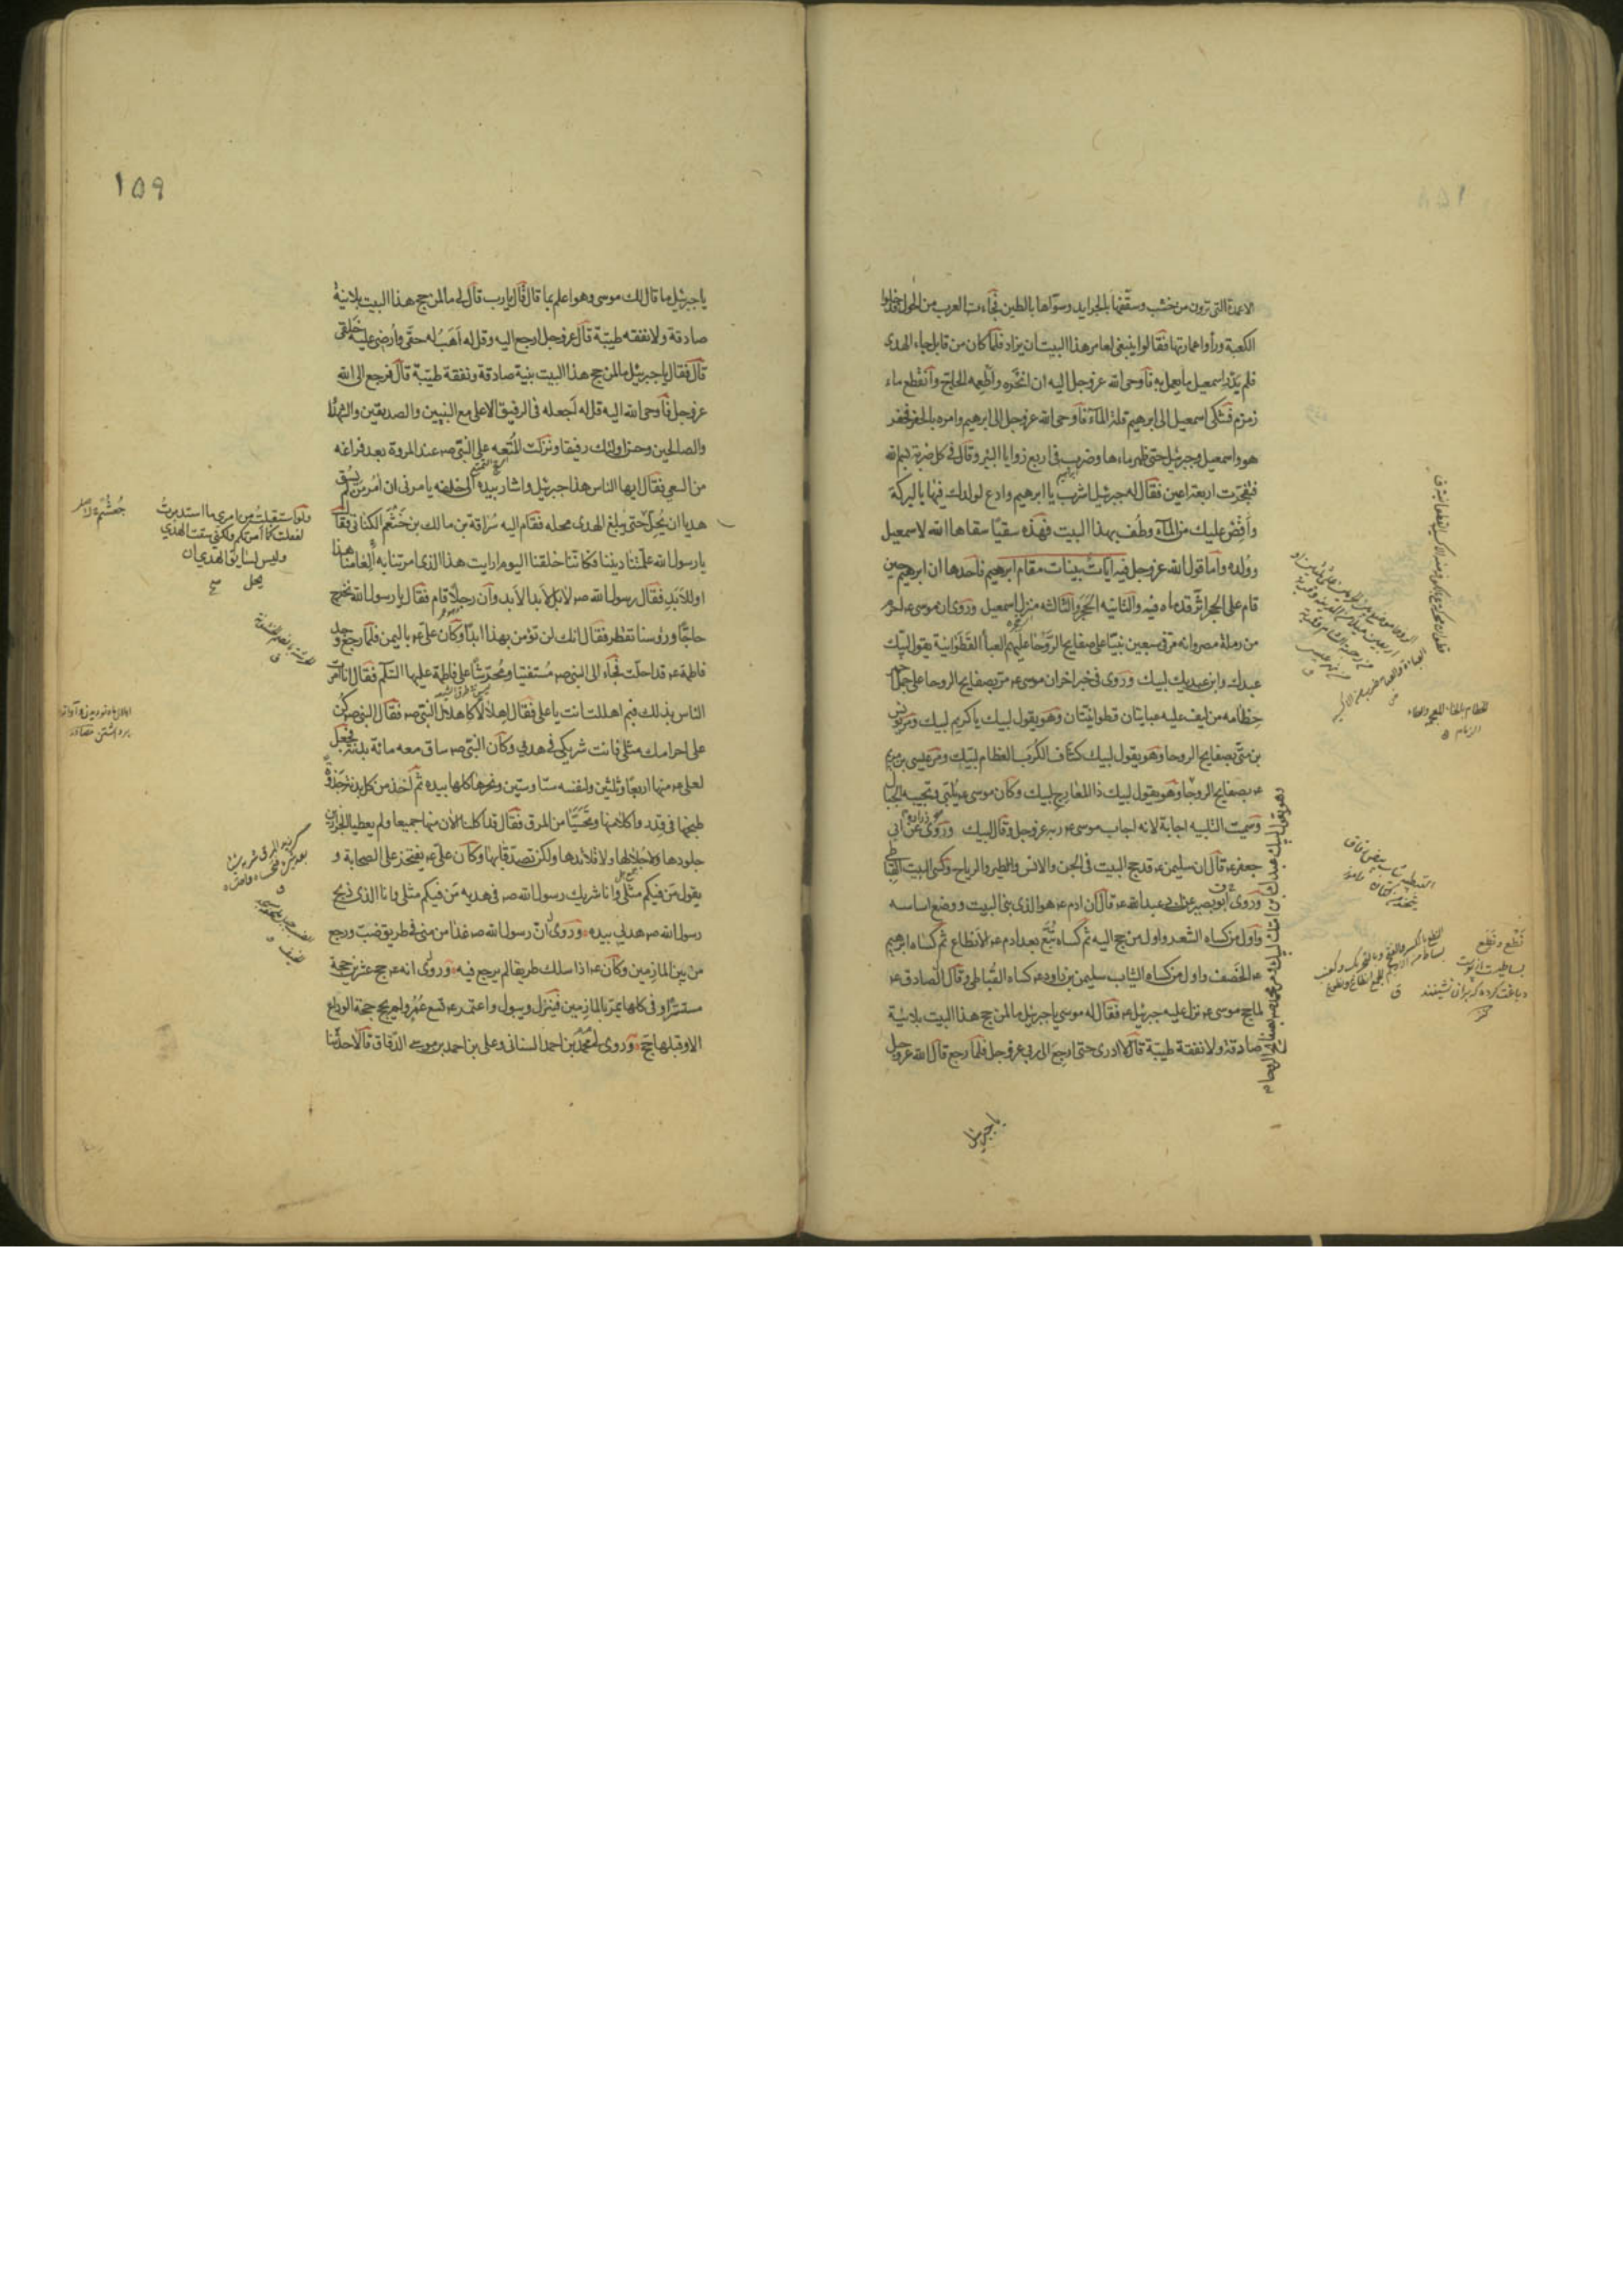 الاعمدة التى ترون من خشب وسقّفها بالجرايد وسوّاها بالطين فجاءت العرب من الحول فدخلوا
الكعبة ورأوا عمارتها فقالوا ينبغى لعامر هذا البيت ان يزاد فلما كان من قابل جاء الهدى
فلم يَدْرِ اسمعيل ما يعمل به فاوحى الله عز وجل اليه ان انحَره واَطْعِمه الحاجّ وانقطع ماء
زمزم فشكى اسمعيل الى ابرهيم قلة المآء فاوحى الله عز وجل الى ابرهيم وامره بالحفر فحفر
هو واسمعيل وجبرئيل حتى ظهر ماءها وضرب فى اربع زوايا البئر وقال فى كل ضربة بسم الله
فتفجّرت اربعة اعين فقال له جبرئيل اشرب يا ابرهيم وادع لولدك فيها بالبركة
وأفِضْ عليك من المآء وطُف بهذا البيت فهذه سقيًا سقاها الله لاسمعيل
ووُلده واما قول الله عز وجل فيه اياتٌ بينات مقام ابرهيم فاحدها ان ابرهيم حين
قام على الحجر اثّر قدماه فيه والثانيه الحَجَر والثالثه منزل اسمعيل وروى ان موسى ع احرم
من رملة مصر وانه مرّ فى سبعين نبيًا على صفايح الرَّوحا عليهم العبأ القَطَوانية يقول لبّيك
عبدك وابن عبديك لبيك وروى فى خبر اخر ان موسى ع مرّ بصفايح الروحا على جمل احمر
خِطامه من ليف عليه عبايتان قطوانيّتان وهو يقول لبيك يا كريم لبيك ومرّ يونس
بن متّى بصفايح الروحا وهو يقول لبيك كشّاف الكُرَب العظام لبّيك ومرّ عيسى بن مريم
ع بصفايح الروحا وهو يقول لبيك ذا المعارج لبيك وكان موسى ع يلبّى وتجيبه الجبال
وسميت التلبيه اجابة لانه اجاب موسى ع ربه عز وجل وقال لبيك وروى عن ابى
جعفر ع قال ان سليمن ع قد حج البيت فى الجن والانس والطير والرياح وكسى البيت القباطى
وروى ابو بصير عن ابى عبد الله ع قال ان ادم ع هو الذى بنى البيت ووضع اساسه
واول من كساه الشعر واول من حج اليه ثم كساه تُبَّع بعد ادم ع الانطاع ثم كساه ابرهيم
ع الخَصَف واول من كساه الثياب سليمن بن داود ع كساه القُباطى وقال الصادق ع
لما حج موسى ع نزل عليه جبرئيل ع فقال له موسى يا جبرئيل ما لمن حج هذا البيت بلا نيّة
صادقة ولا نفقة طيبّة قال لا ادرى حتى ارجع الى ربى عز وجل فلما رجع قال الله عز وجل
يا جبرئيل
١٥٩
يا جبرئيل ما قال لك موسى وهو اعلم بما قال قال يا رب قال لى ما لمن حج هذا البيت بلا نية
صادقة ولا نفقه طيبّة قال عز وجل ارجع اليه وقل له اَهَبُ له حقّى واُرضى عليه خَلقى
قال فقال يا جبرئيل ما لمن حج هذا البيت بنية صادقة ونفقة طيّبة قال فرجع الى الله
عز وجل فاوحى الله اليه قل له اَجعله فى الرفيق الاعلى مع النبيين والصديقين والشهداء
والصالحين وحسن اولئك رفيقا ونزلت المُتعه على النبّى ص عند المروة بعد فراغه
من السعى فقال ايها الناس هذا جبرئيل واشار بيده الى خلفه يامرنى ان آمُر من لم يَسُق
هديا ان يُحِلّ حتى يبلغ الهدى محله فقام اليه سُراقة بن مالك بن خَثْعَم الكنانى فقال
يا رسول الله علّمتنا ديننا فكانّنا خلقنا اليوم ارايت هذا الذى امرتنا به ألِعامنا هذا
او للاَبَد فقال رسول الله ص لا بل لابد الاَبد وان رجلاً قام فقال يا رسول الله نخرج
حاجًّا ورؤسنا تقطُر فقال انك لن تؤمن بهذا ابدًا وكان علىّ ع باليمن فلمّا رجع وجد
فاطمة ع قد احلّت فجاء الى النبى ص مُستفتيا ومُحرّشًا على فاطمة عليها السّلام فقال انا امرت
الناس بذلك فبم اهللت انت يا على فقال اهلالًا كاهلال النبّى ص فقال النبى ص كُن
على احرامك مثلى فانت شريكى فى هديى وكان النبّى ص ساق معه مائة بدنة فجعل
لعلى ع منها اربعًا وثلثين ولنفسه ستا وستين ونحرها كلها بيده ثم اخذ من كل بدنة جَذوة
طبخها فى قِدر واكلا منها وتحَسَّيا من المرق فقال قد اكلنا الآن منها جميعا ولم يعطيا الجزارين
جلودها ولا جلالها ولا قلائدها ولكن تصدّقا بها وكان علىّ ع يفتخر على الصحابة و
يقول مَن فيكم مثلى وانا شريك رسول الله ص فى هديه مَن فيكم مثلى وانا الذى ذبح
رسول الله ص هديى بيده وروى انّ رسول الله ص غدا من منى فى طريق ضبّ ورجع
من بين المازمين وكان ع اذا سلك طريقا لم يرجع فيه وروى انه ع حج عشرين حجة
مستسرًّا وفى كلها يمرّ بالمازمين فينزل ويبول واعتمر ع تسع عُمَر ولم يحج حجة الوداع
الا وقبلها حجّ وروى لى محمد بن احمد السنانى وعلى بن احمد بن موسى الدّقاق قالا حدّثنا
ولو استقبلت من امرى ما استدبرت
لفعلت كما امرتكم ولكنى سقت الهدى
وليس لسائق الهدى ان
يحل